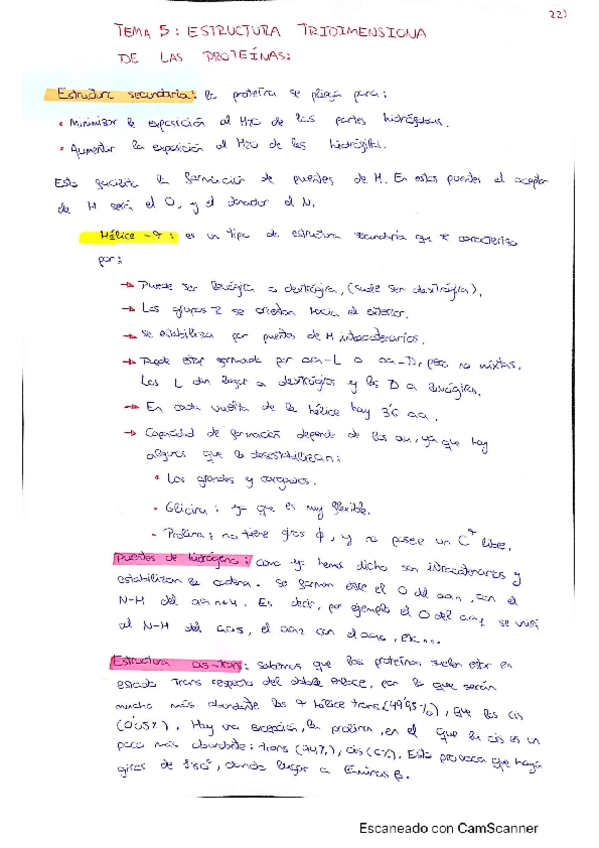 22)
TEMA 5: ESTRUCTURA TRIDIMENSIONA
DE LAS PROTEÍNAS:
Estructura secundaria: la proteína se pliega para:
• Minimizar la exposición al H2O de las partes hidrófobas.
• Aumentar la exposición al H2O de las hidrófilas.
Esto facilita la formación de puentes de H. En estos puentes el aceptor
de H será el O, y el donador el N.
Hélice-α: es un tipo de estructura secundaria que se caracteriza
por:
→ Puede ser levógira o dextrógira, (suele ser dextrógira).
→ Los grupos R se orientan hacia el exterior.
→ Se estabiliza por puentes de H intracatenarios.
→ Puede estar formada por aa-L o aa-D, pero no mixtas.
Los L dan lugar a dextrógiras y los D a levógiras.
→ En cada vuelta de la hélice hay 3'6 aa.
→ Capacidad de formación depende de los aa, ya que hay
algunos que la desestabilizan:
• Los grandes y cargados.
• Glicina: ya que es muy flexible.
• Prolina: no tiene giros ϕ, y no posee un libre.
Puentes de hidrógeno: como ya hemos dicho son intracatenarios y
estabilizan la cadena. Se forman entre el O del aan, con el
N-H del aan+4. Es decir, por ejemplo el O del aa1 se unirá
al N-H del aa5, el aa2 con el aa6, etc...
Estructura cis-trans: sabemos que las proteínas suelen estar en
estado trans respecto del doble enlace, por lo que serán
mucho más abundante las α hélice trans (99'95%), que las cis
(0'05%). Hay una excepción, la prolina, en el que la cis es un
poco más abundante: trans (94%), cis (6%). Esto provoca que haya
giros de 180°, dando lugar a láminas β.
Escaneado con CamScanner